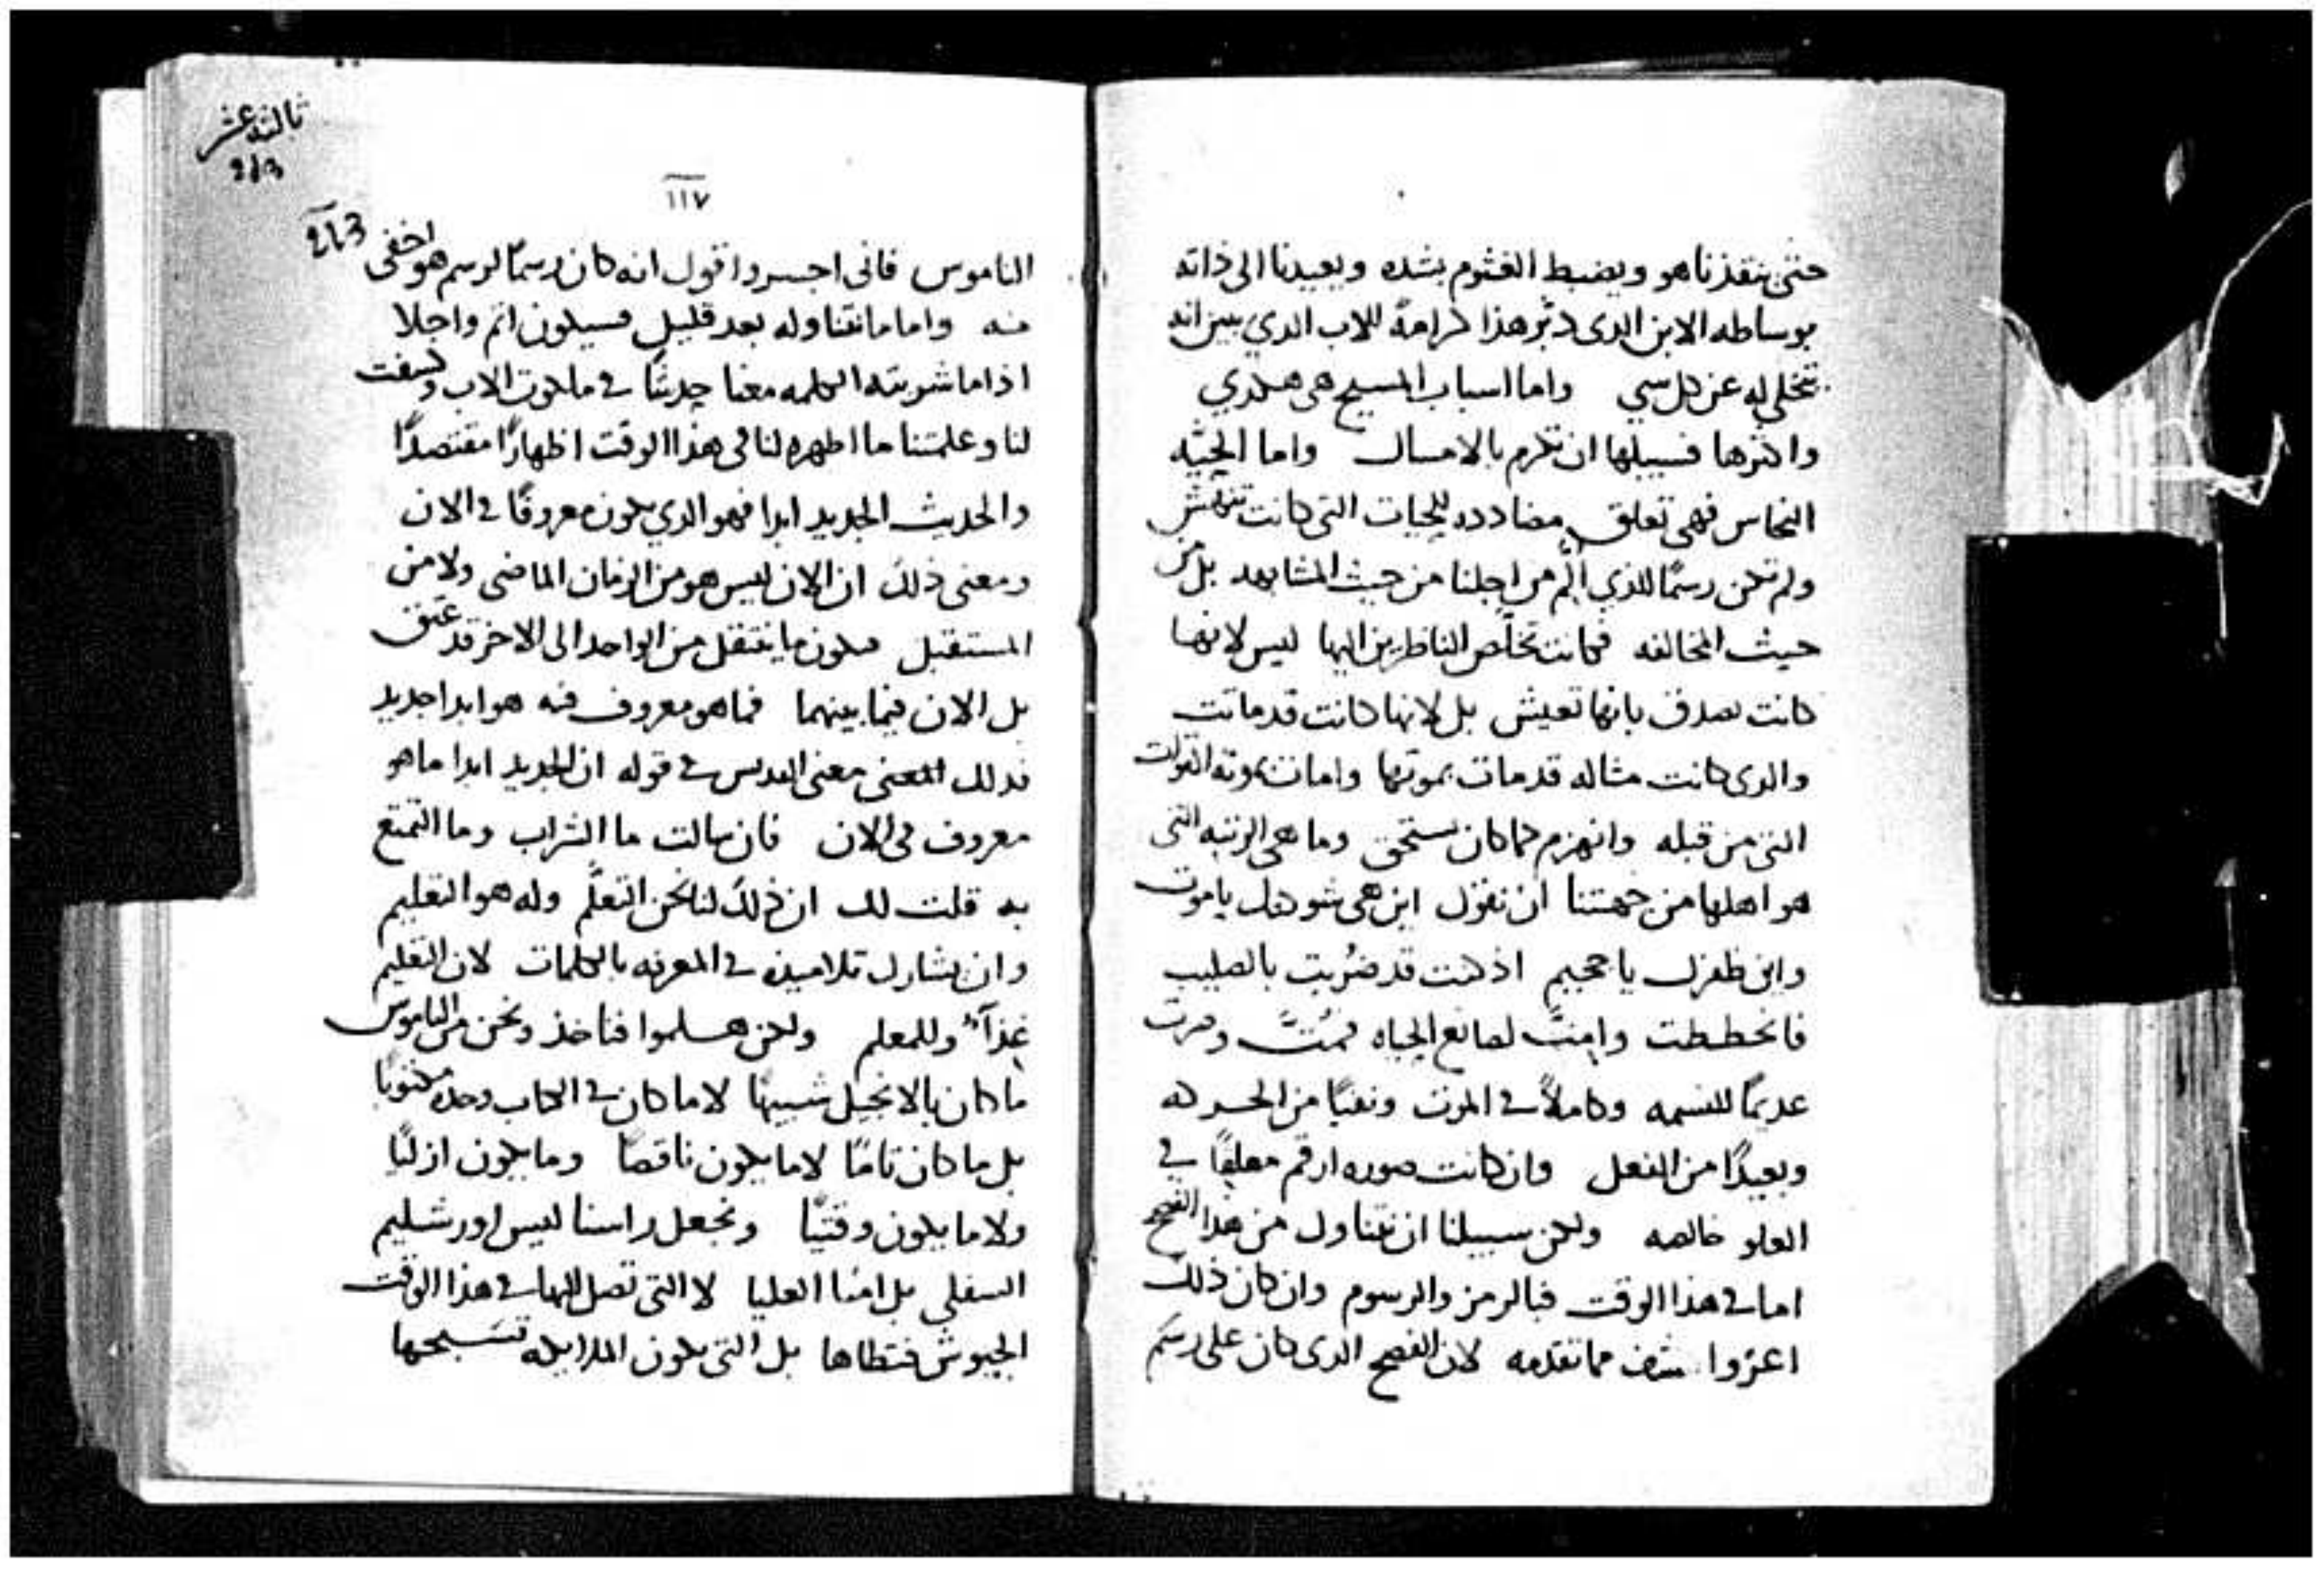 حتى ينقذنا هو ويضبط الغشوم بشده ويعيدنا الى ذاته
بوساطه الابن الدى دبّر هذا كرامةً للاب الدي يبين انه
تخلى له عن كل سي واما اسباب المسيح هى هكدي
واكثرها فسبيلها ان تكرم بالامساك واما الحيّه
النحاس فهى تعلق مضادده للحيات التى كانت تنهش
ولم تكن رسمًا للذي الم من اجلنا من حيث المشابهه بل من
حيث المخالفه فكانت تخلّص الناظرين اليها ليس لانها
كانت تصدق بانها تعيش بل لانها كانت قد ماتت
والدى كانت مثاله قد مات بموتها وامات بموته القوات
التى من قبله وانهزم كما كان يستحق وما هى الرتبه التى
هو اهلها من جهتنا ان نقول اين هى شوكتك يا موت
واين ظفرك يا جحيم اذ كنت قد ضُربت بالصليب
فانحططت وامتّ لصانع الحياه فمُتّ وصرت
عديمًا للنسمه وكاملاً في الموت ونقيًا من الحركه
وبعيدًا من الفعل وان كانت صوره ارقم معلقًا في
العلو خالصه ولكن سبيلنا ان نتناول من هذا الفصح
اما في هذا الوقت فبالرمز والرسوم وان كان ذلك
اعزوا شف مما تقدمه لان الفصح الدى كان على رسم
ثالثه عشر
213
١١٧
213
الناموس فانى اجسر واقول انه كان رسمًا لرسم هو اخفى
منه واما ما نتناوله بعد قليل فسيكون اتم واجلا
اذا ما شربته الكلمه معنا جديدًا في ملكوت الاب وكشفت
لنا وعلمتنا ما اظهره لنا في هذا الوقت اظهارًا مقتصدًا
والحديث الجديد ابدا فهو الدي يكون معروفًا في الان
ومعنى ذلك ان الان ليس هو من الزمان الماضى ولا من
المستقبل فيكون ما ينتقل من الواحد الى الاخر قد عتق
بل الان فيما بينهما فما هو معروف فيه هو ابدا جديد
فدلك المعنى معنى القديس في قوله ان الجديد ابدا ما هو
معروف في الان فان سالت ما الشراب وما التمتع
به قلت لك ان ذلك لنا نحن التعلّم وله هو التعليم
وان يشارك تلاميذه في المعرفه بالكلمات لان التعليم
غذآءٌ وللمعلم ولكن هلموا فناخذ ونحن من الناموس
ما كان بالانجيل شبيهًا لا ما كان في الكتاب وحده مكتوبًا
بل ما كان تامًا لا ما يكون ناقصًا وما يكون ازليًا
ولا ما يكون وقتيًّا ونجعل راسنا ليس اورشليم
السفلى بل امنا العليا لا التى تصل اليها في هذا الوقت
الجيوش فتطاها بل التى يكون الملايكه تسبحها